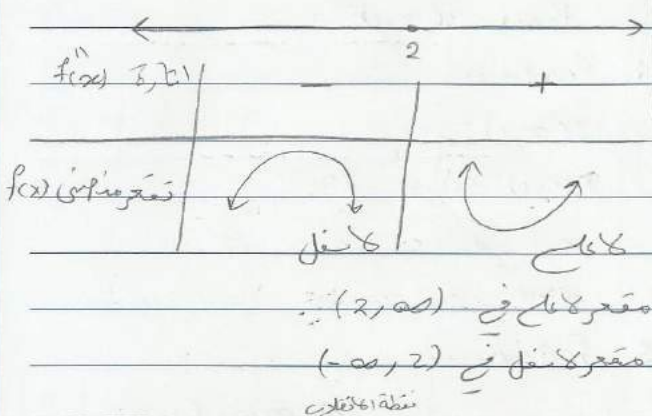 2
إشارة f''(x) − +
تقعر منحنى f(x)
لأسفل لأعلى
مقعر لأعلى في (2, ∞)
مقعر لأسفل في (-∞, 2)
نقطة الانقلاب